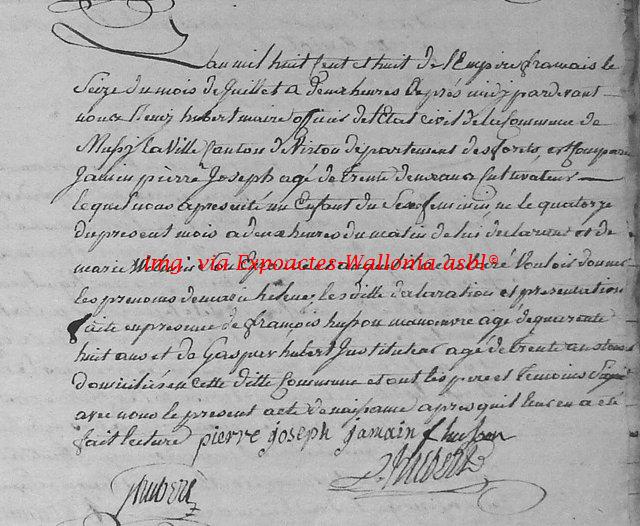 Lan mil huit cent et huit de l'Empire francais le
Seize du mois de Juillet a deux heures de près midi pardevant
nous Remi hubert maire officier de l'Etat civil de la Commune de
Mussy la Ville Canton de Virton departement des forêts, est Comparu
Jamin pierre Joseph agé de trente deux ans Cultivateur
lequel nous a presenté un Enfant du Sexe feminin né le quatorze
du present mois a deux heures du matin de lui declarant et de
marie
img. via Expoactes-Wallonia asbl®
declaré Vouloir donner
les prenoms de marie helene, les dittes declaration et presentation
faite en presence de françois husson manoeuvre agé de quarante
huit ans et de Gaspar hubert Instituteur agé de trente ans tous
domiciliés en cette ditte Commune et ont les pere et temoins Signé
avec nous le present acte de naissance apres qu'il leur en a été
fait lecture pierre joseph jamain f husson
hubert
hubert